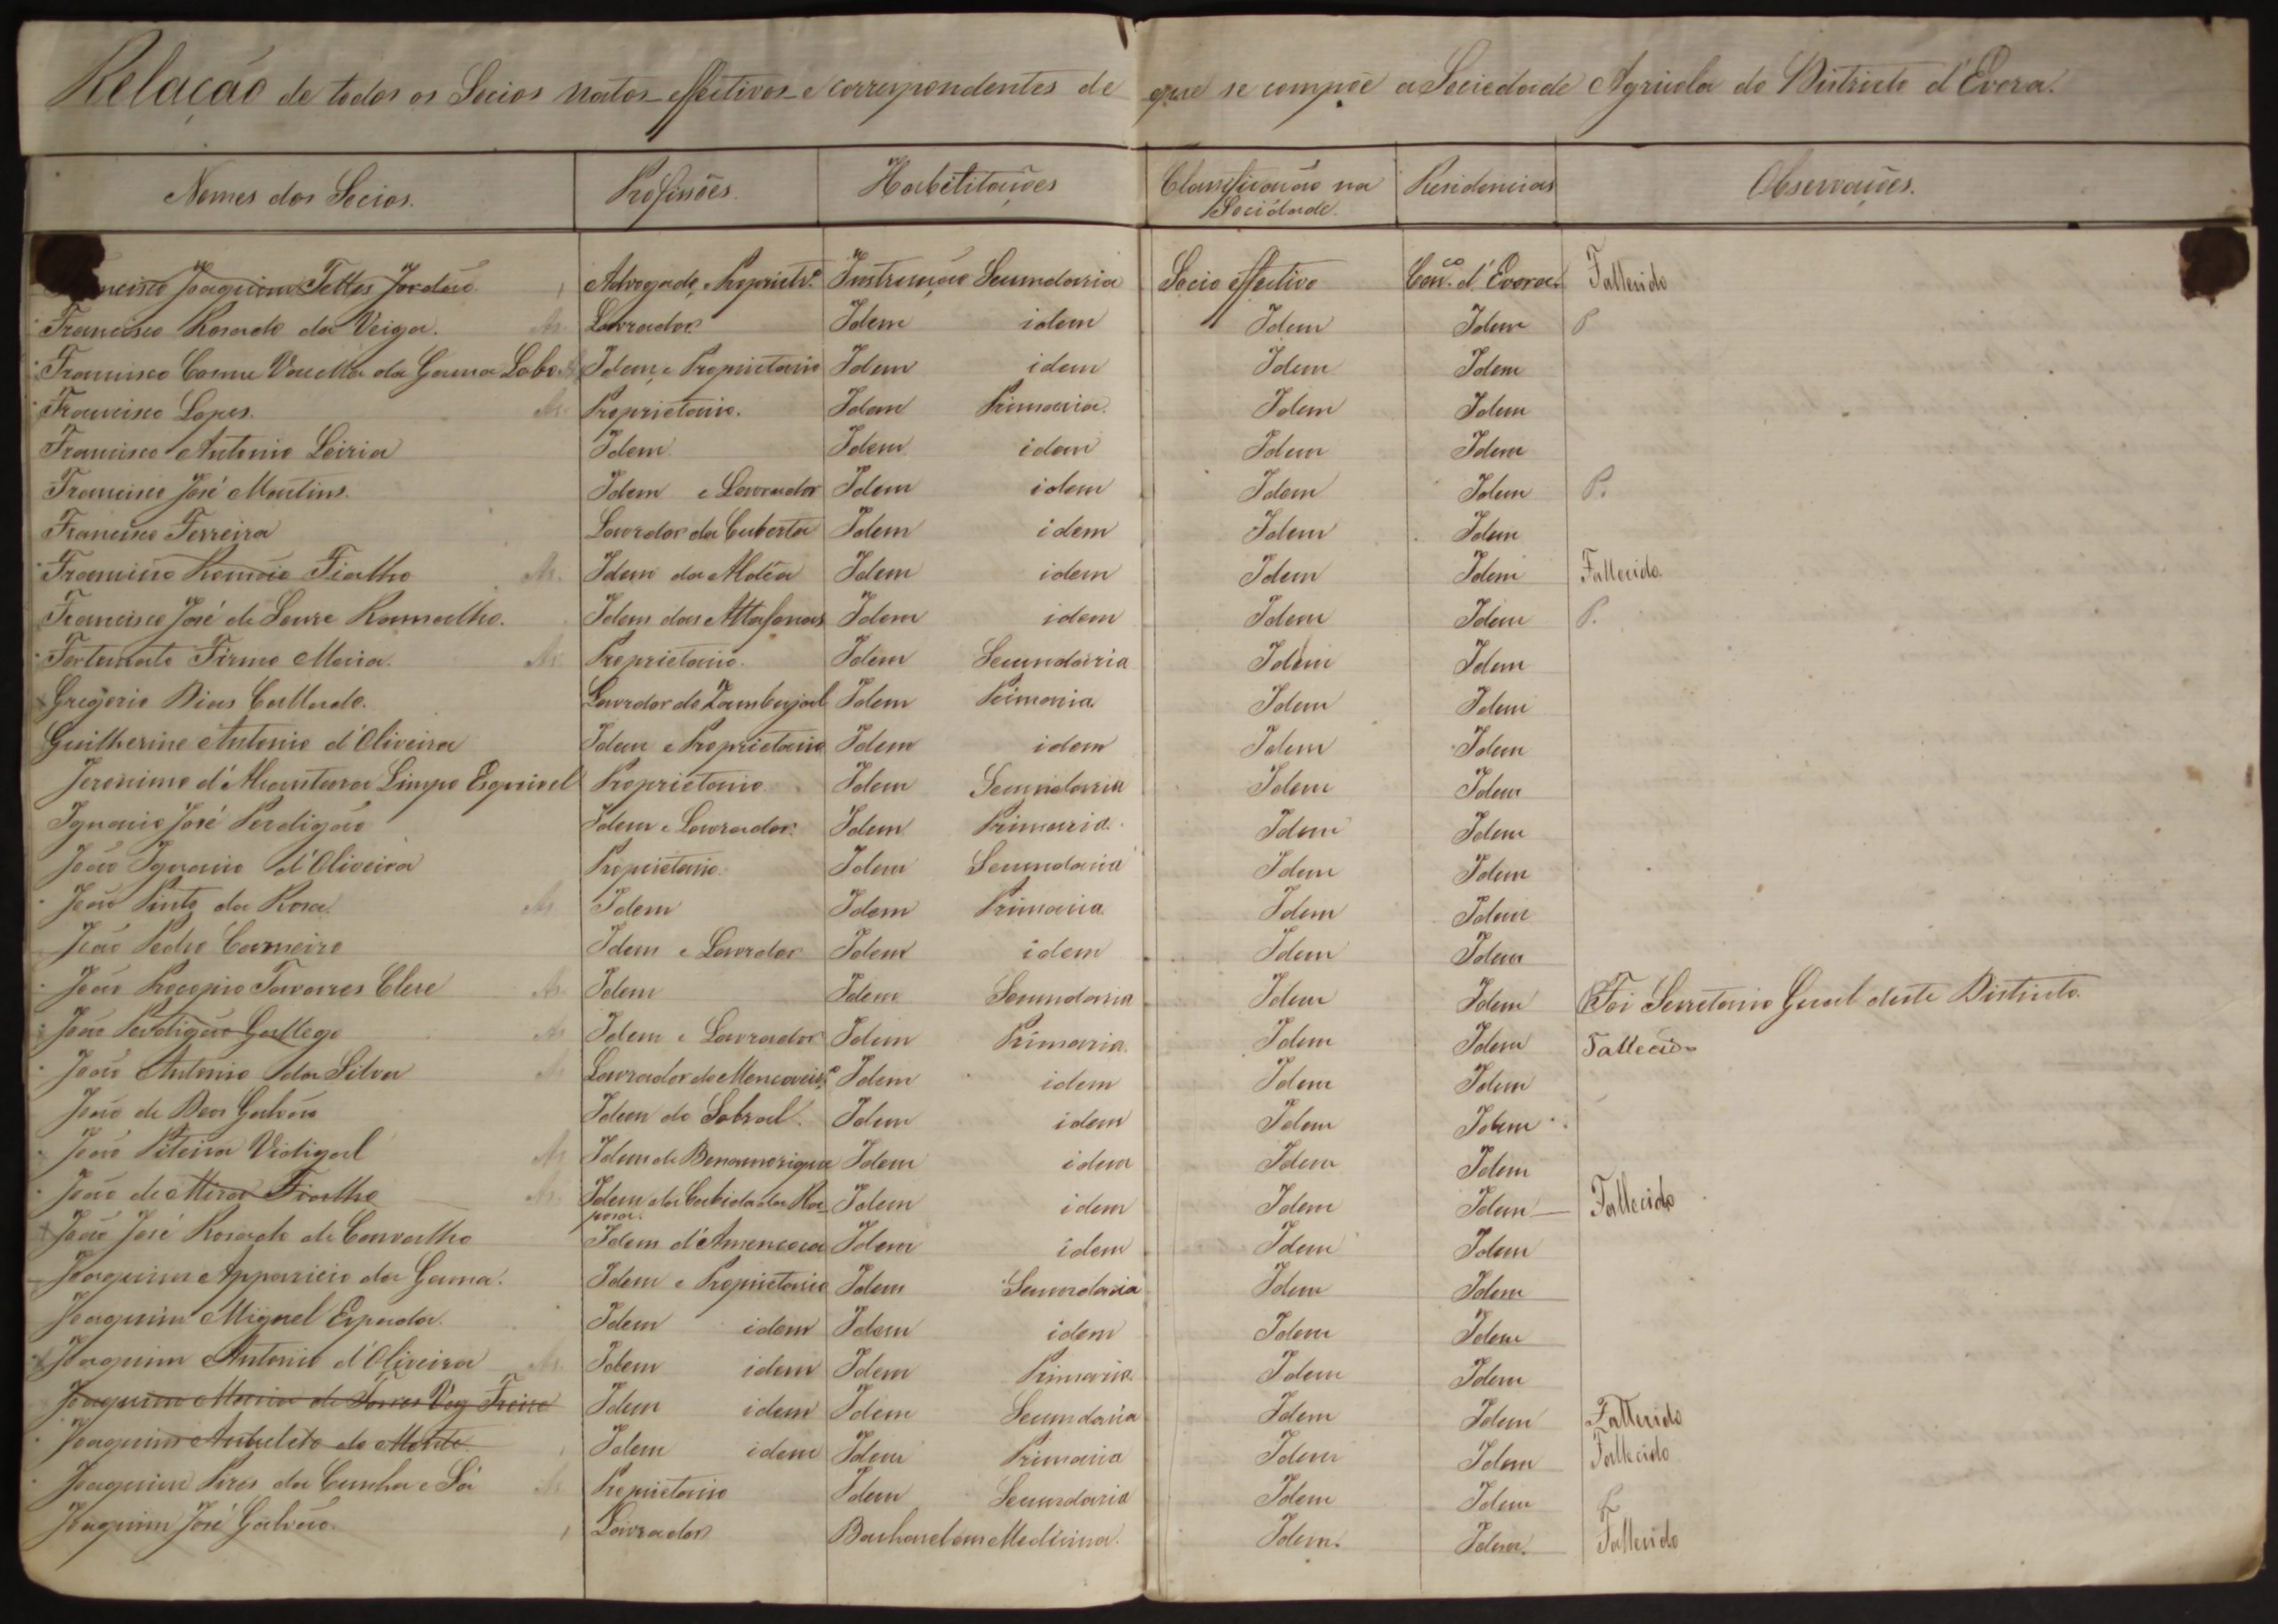 Relação de todos os Socios natos effectivos e correspondentes de que se compõe a Sociedade Agricola do Districto d'Evora.
Nomes dos Socios. Profissões. Habilitações Classificação na Sociedade. Residencias Observações.
Joaquim Telles Jordão Advogado, Propriet.º Instrucção Secundaria Socio effectivo Con.co d'Evora. Fallecido
Francisco Rosado da Veiga. As. Lavrador Idem idem Idem Idem P
Francisco Cosme Varella da Gama Lobo Idem, e Proprietario Idem idem Idem Idem
Francisco Lopes. As. Proprietario. Idem Primaria. Idem Idem
Francisco Antonio Leiria Idem Idem idem Idem Idem
Francisco José Martins. Idem e Lavrador Idem idem Idem Idem P.
Francisco Ferreira Lavrador da Cuberta Idem idem Idem Idem
Francisco Romão Fialho As. Idem da Idem idem Idem Idem Fallecido.
Francisco José de Ramalho. Idem das Atafonas Idem idem Idem Idem P.
Fortunato Firmo Maria. As. Proprietario. Idem Secundaria Idem Idem
Gregorio Dias Callado. Lavrador do Zambujal Idem Primaria Idem Idem
Guilherme Antonio d'Oliveira Idem e Proprietario Idem idem Idem Idem
Jeronimo d'Alcantara Limpo Esquivel Proprietario Idem Secundaria Idem Idem
Ignacio José Perdigão Idem e Lavrador. Idem Primaria. Idem Idem
João Ignacio d'Oliveira Proprietario. Idem Secundaria Idem Idem
João Pinto da Rosa. As Idem Idem Primaria. Idem Idem
João Pedro Carneiro Idem e Lavrador Idem idem Idem Idem
João Procopio Tavares As. Idem Idem Secundaria Idem Idem Foi Secretario Geral deste Districto.
João Perdigão Gallego As Idem e Lavrador Idem Primaria. Idem Idem Fallecido
João Antonio da Silva As Lavrador do Idem idem Idem Idem
João de Deos Galvão Idem do Sobral. Idem idem Idem Idem
João Piteira Vidigal As Idem de Benamerique Idem idem Idem Idem
João de Mira Fialho As. Idem da Cabida da Raposa. Idem idem Idem Idem Fallecido
João José Rosado de Carvalho Idem Idem idem Idem Idem
Joaquim Apparicio da Gama. Idem e Proprietario Idem Secundaria Idem Idem
Joaquim Miguel Espada. Idem idem Idem idem Idem Idem
Joaquim Antonio d'Oliveira As. Idem idem Idem Primaria. Idem Idem
Joaquim Maria de Torres Vaz Freire Idem idem Idem Secundaria Idem Idem Fallecido
Joaquim Anacleto do Monte Idem idem Idem Primaria Idem Idem Fallecido
Joaquim Pires da Cunha e Sá As Proprietario Idem Secundaria Idem Idem P
Joaquim José Galvão. Lavrador Bacharel em Medicina. Idem. Idem. Fallecido